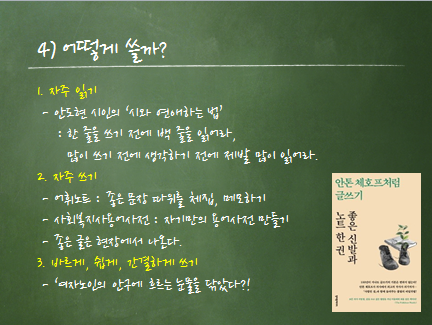 4) 어떻게 쓸까?
1. 자주 읽기
- 안도현 시인의 '시와 연애하는 법'
: 한 줄을 쓰기 전에 백 줄을 읽어라,
많이 쓰기 전에 생각하기 전에 제발 많이 읽어라.
2. 자주 쓰기
- 어휘노트 : 좋은 문장 따위를 채집, 메모하기
- 사회복지사용어사전 : 자기만의 용어사전 만들기
- 좋은 글은 현장에서 나온다.
3. 바르게, 쉽게, 간결하게 쓰기
- '여자노인의 안구에 흐르는 눈물을 닦았다?!
안톤 체호프처럼
글쓰기
좋은 신발과
노트 한 권